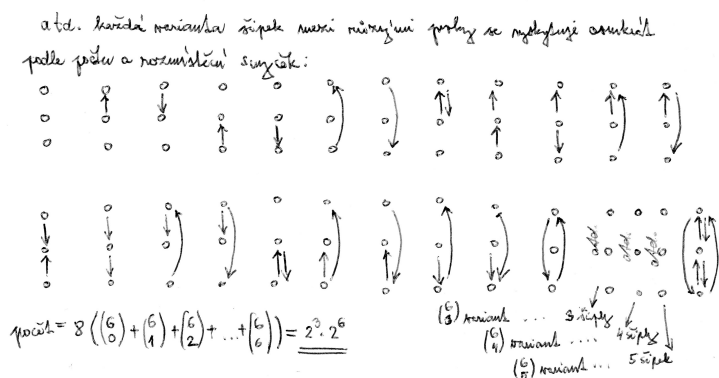 atd. každá varianta šipek mezi různými prvky se vyskytuje osmkrát
podle počtu a rozmístění smyček:
atd. atd. atd.
počet = 8 ((6 0) + (6 1) + (6 2) + ... + (6 6)) = 2³ · 2⁶
(6 3) variant .... 3 šipky
(6 4) variant ... 4 šipky
(6 5) variant ... 5 šipek